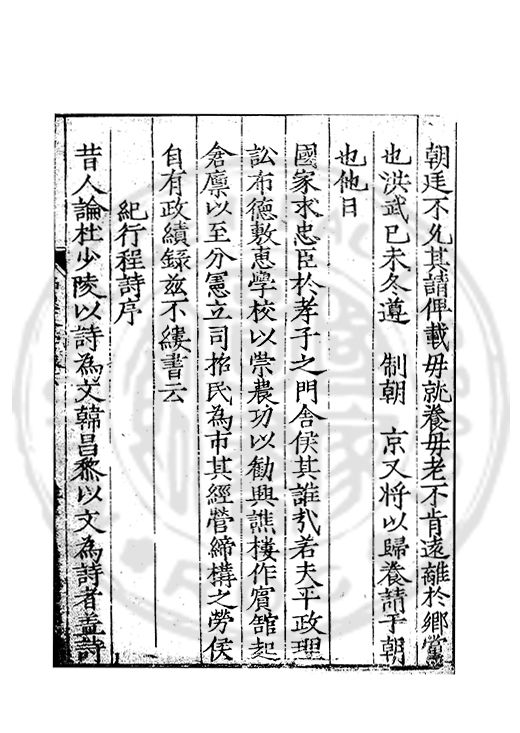 朝廷不允其請俾載毋就養毋老不肯遠離於鄉黨
也洪武己未冬遵 制朝 京又將以歸養請于朝
也他日
國家求忠臣於孝子之門舍侯其誰㢤若夫平政理
訟布德敷惠學校以崇農功以勸興譙樓作賓舘起
倉廪以至分憲立司招民為市其經營締構之勞侯
自有政績録兹不縷書云
紀行程詩序
昔人論杜少陵以詩為文韓昌黎以文為詩者盖詩